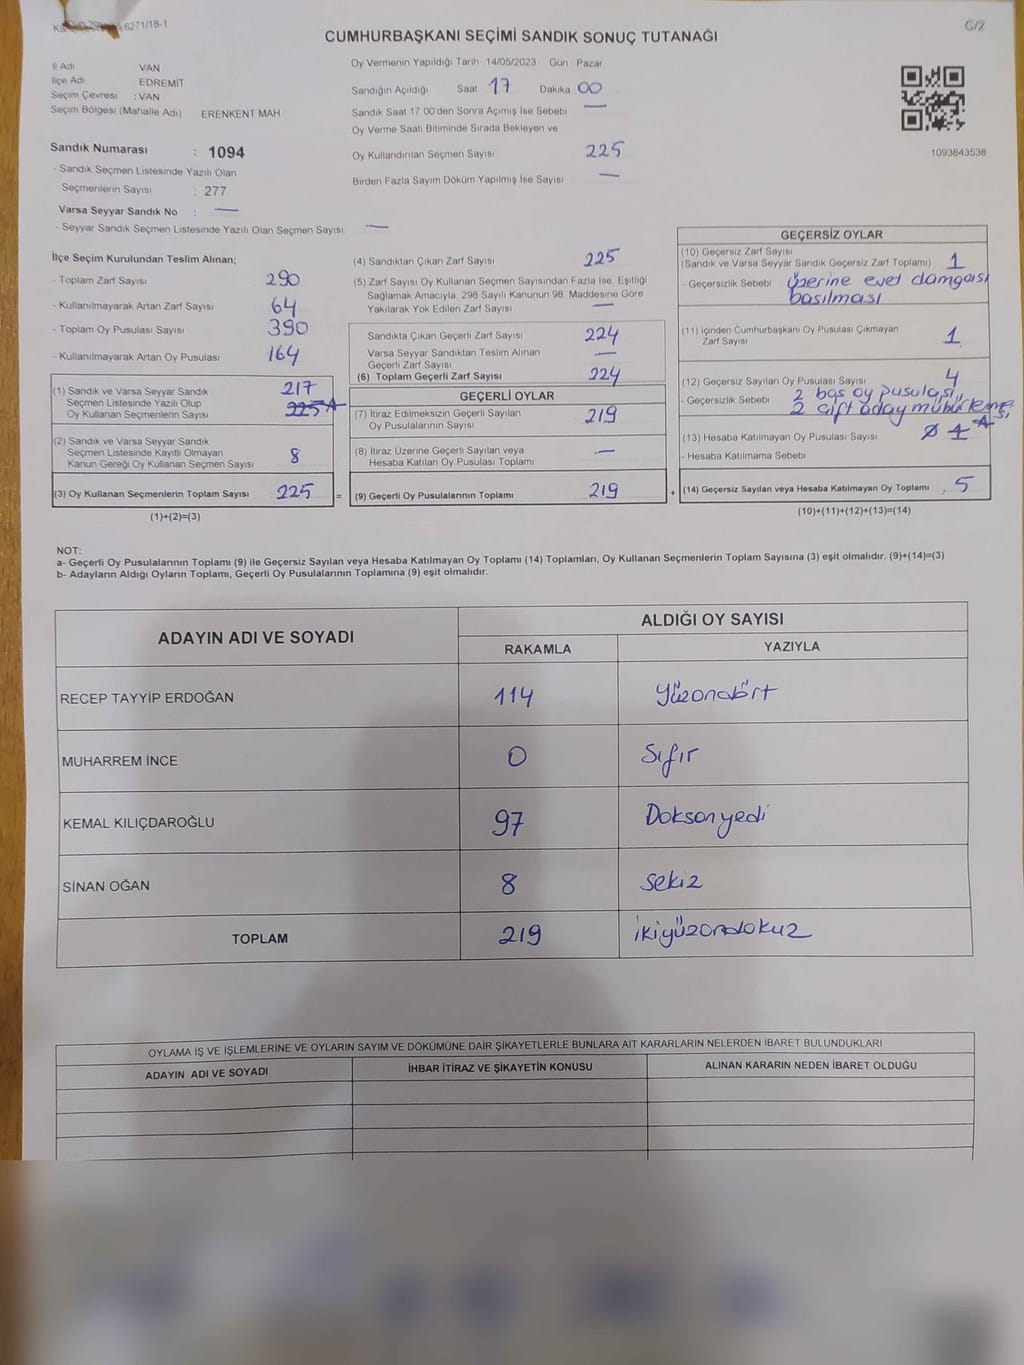 6271/18-1
C/2
CUMHURBAŞKANI SEÇİMİ SANDIK SONUÇ TUTANAĞI
İl Adı VAN
İlçe Adı EDREMİT
Seçim Çevresi : VAN
Seçim Bölgesi (Mahalle Adı) ERENKENT MAH
Oy Vermenin Yapıldığı Tarih 14/05/2023 Gün Pazar
Sandığın Açıldığı Saat 17 Dakika 00
Sandık Saat 17 00'den Sonra Açımış İse Sebebi —
Oy Verme Saati Bitiminde Sırada Bekleyen ve
Oy Kullandırılan Seçmen Sayısı 225
Birden Fazla Sayım Döküm Yapılmış İse Sayısı —
1093843538
Sandık Numarası : 1094
- Sandık Seçmen Listesinde Yazılı Olan
Seçmenlerin Sayısı : 277
Varsa Seyyar Sandık No : —
- Seyyar Sandık Seçmen Listesinde Yazılı Olan Seçmen Sayısı —
İlçe Seçim Kurulundan Teslim Alınan;
- Toplam Zarf Sayısı 290
- Kullanılmayarak Artan Zarf Sayısı 64
- Toplam Oy Pusulası Sayısı 390
- Kullanılmayarak Artan Oy Pusulası 164
(1) Sandık ve Varsa Seyyar Sandık 217
Seçmen Listesinde Yazılı Olup
Oy Kullanan Seçmenlerin Sayısı 225
(2) Sandık ve Varsa Seyyar Sandık
Seçmen Listesinde Kayıtlı Olmayan
Kanun Gereği Oy Kullanan Seçmen Sayısı 8
(3) Oy Kullanan Seçmenlerin Toplam Sayısı 225 =
(1)+(2)=(3)
(4) Sandıktan Çıkan Zarf Sayısı 225
(5) Zarf Sayısı Oy Kullanan Seçmen Sayısından Fazla İse, Eşitliği
Sağlamak Amacıyla, 298 Sayılı Kanunun 98. Maddesine Göre
Yakılarak Yok Edilen Zarf Sayısı —
Sandıkta Çıkan Geçerli Zarf Sayısı 224
Varsa Seyyar Sandıktan Teslim Alınan —
Geçerli Zarf Sayısı
(6) Toplam Geçerli Zarf Sayısı 224
GEÇERLİ OYLAR
(7) İtiraz Edilmeksizin Geçerli Sayılan 219
Oy Pusulalarının Sayısı
(8) İtiraz Üzerine Geçerli Sayılan veya —
Hesaba Katılan Oy Pusulası Toplamı
(9) Geçerli Oy Pusulalarının Toplamı 219 +
GEÇERSİZ OYLAR
(10) Geçersiz Zarf Sayısı
(Sandık ve Varsa Seyyar Sandık Geçersiz Zarf Toplamı) 1
- Geçersizlik Sebebi üzerine evet damgası
basılması
(11) İçinden Cumhurbaşkanı Oy Pusulası Çıkmayan 1
Zarf Sayısı
(12) Geçersiz Sayılan Oy Pusulası Sayısı 4
- Geçersizlik Sebebi 2 boş oy pusulası,
2 çift aday mühürleme,
(13) Hesaba Katılmayan Oy Pusulası Sayısı
- Hesaba Katılmama Sebebi
(14) Geçersiz Sayılan veya Hesaba Katılmayan Oy Toplamı 5
(10)+(11)+(12)+(13)=(14)
NOT:
a- Geçerli Oy Pusulalarının Toplamı (9) ile Geçersiz Sayılan veya Hesaba Katılmayan Oy Toplamı (14) Toplamları, Oy Kullanan Seçmenlerin Toplam Sayısına (3) eşit olmalıdır. (9)+(14)=(3)
b- Adayların Aldığı Oyların Toplamı, Geçerli Oy Pusulalarının Toplamına (9) eşit olmalıdır.
ADAYIN ADI VE SOYADI ALDIĞI OY SAYISI
RAKAMLA YAZIYLA
RECEP TAYYİP ERDOĞAN 114 Yüzondört
MUHARREM İNCE 0 Sıfır
KEMAL KILIÇDAROĞLU 97 Doksanyedi
SİNAN OĞAN 8 Sekiz
TOPLAM 219 ikiyüzondokuz
OYLAMA İŞ VE İŞLEMLERİNE VE OYLARIN SAYIM VE DÖKÜMÜNE DAİR ŞİKAYETLERLE BUNLARA AİT KARARLARIN NELERDEN İBARET BULUNDUKLARI
ADAYIN ADI VE SOYADI İHBAR İTİRAZ VE ŞİKAYETİN KONUSU ALINAN KARARIN NEDEN İBARET OLDUĞU